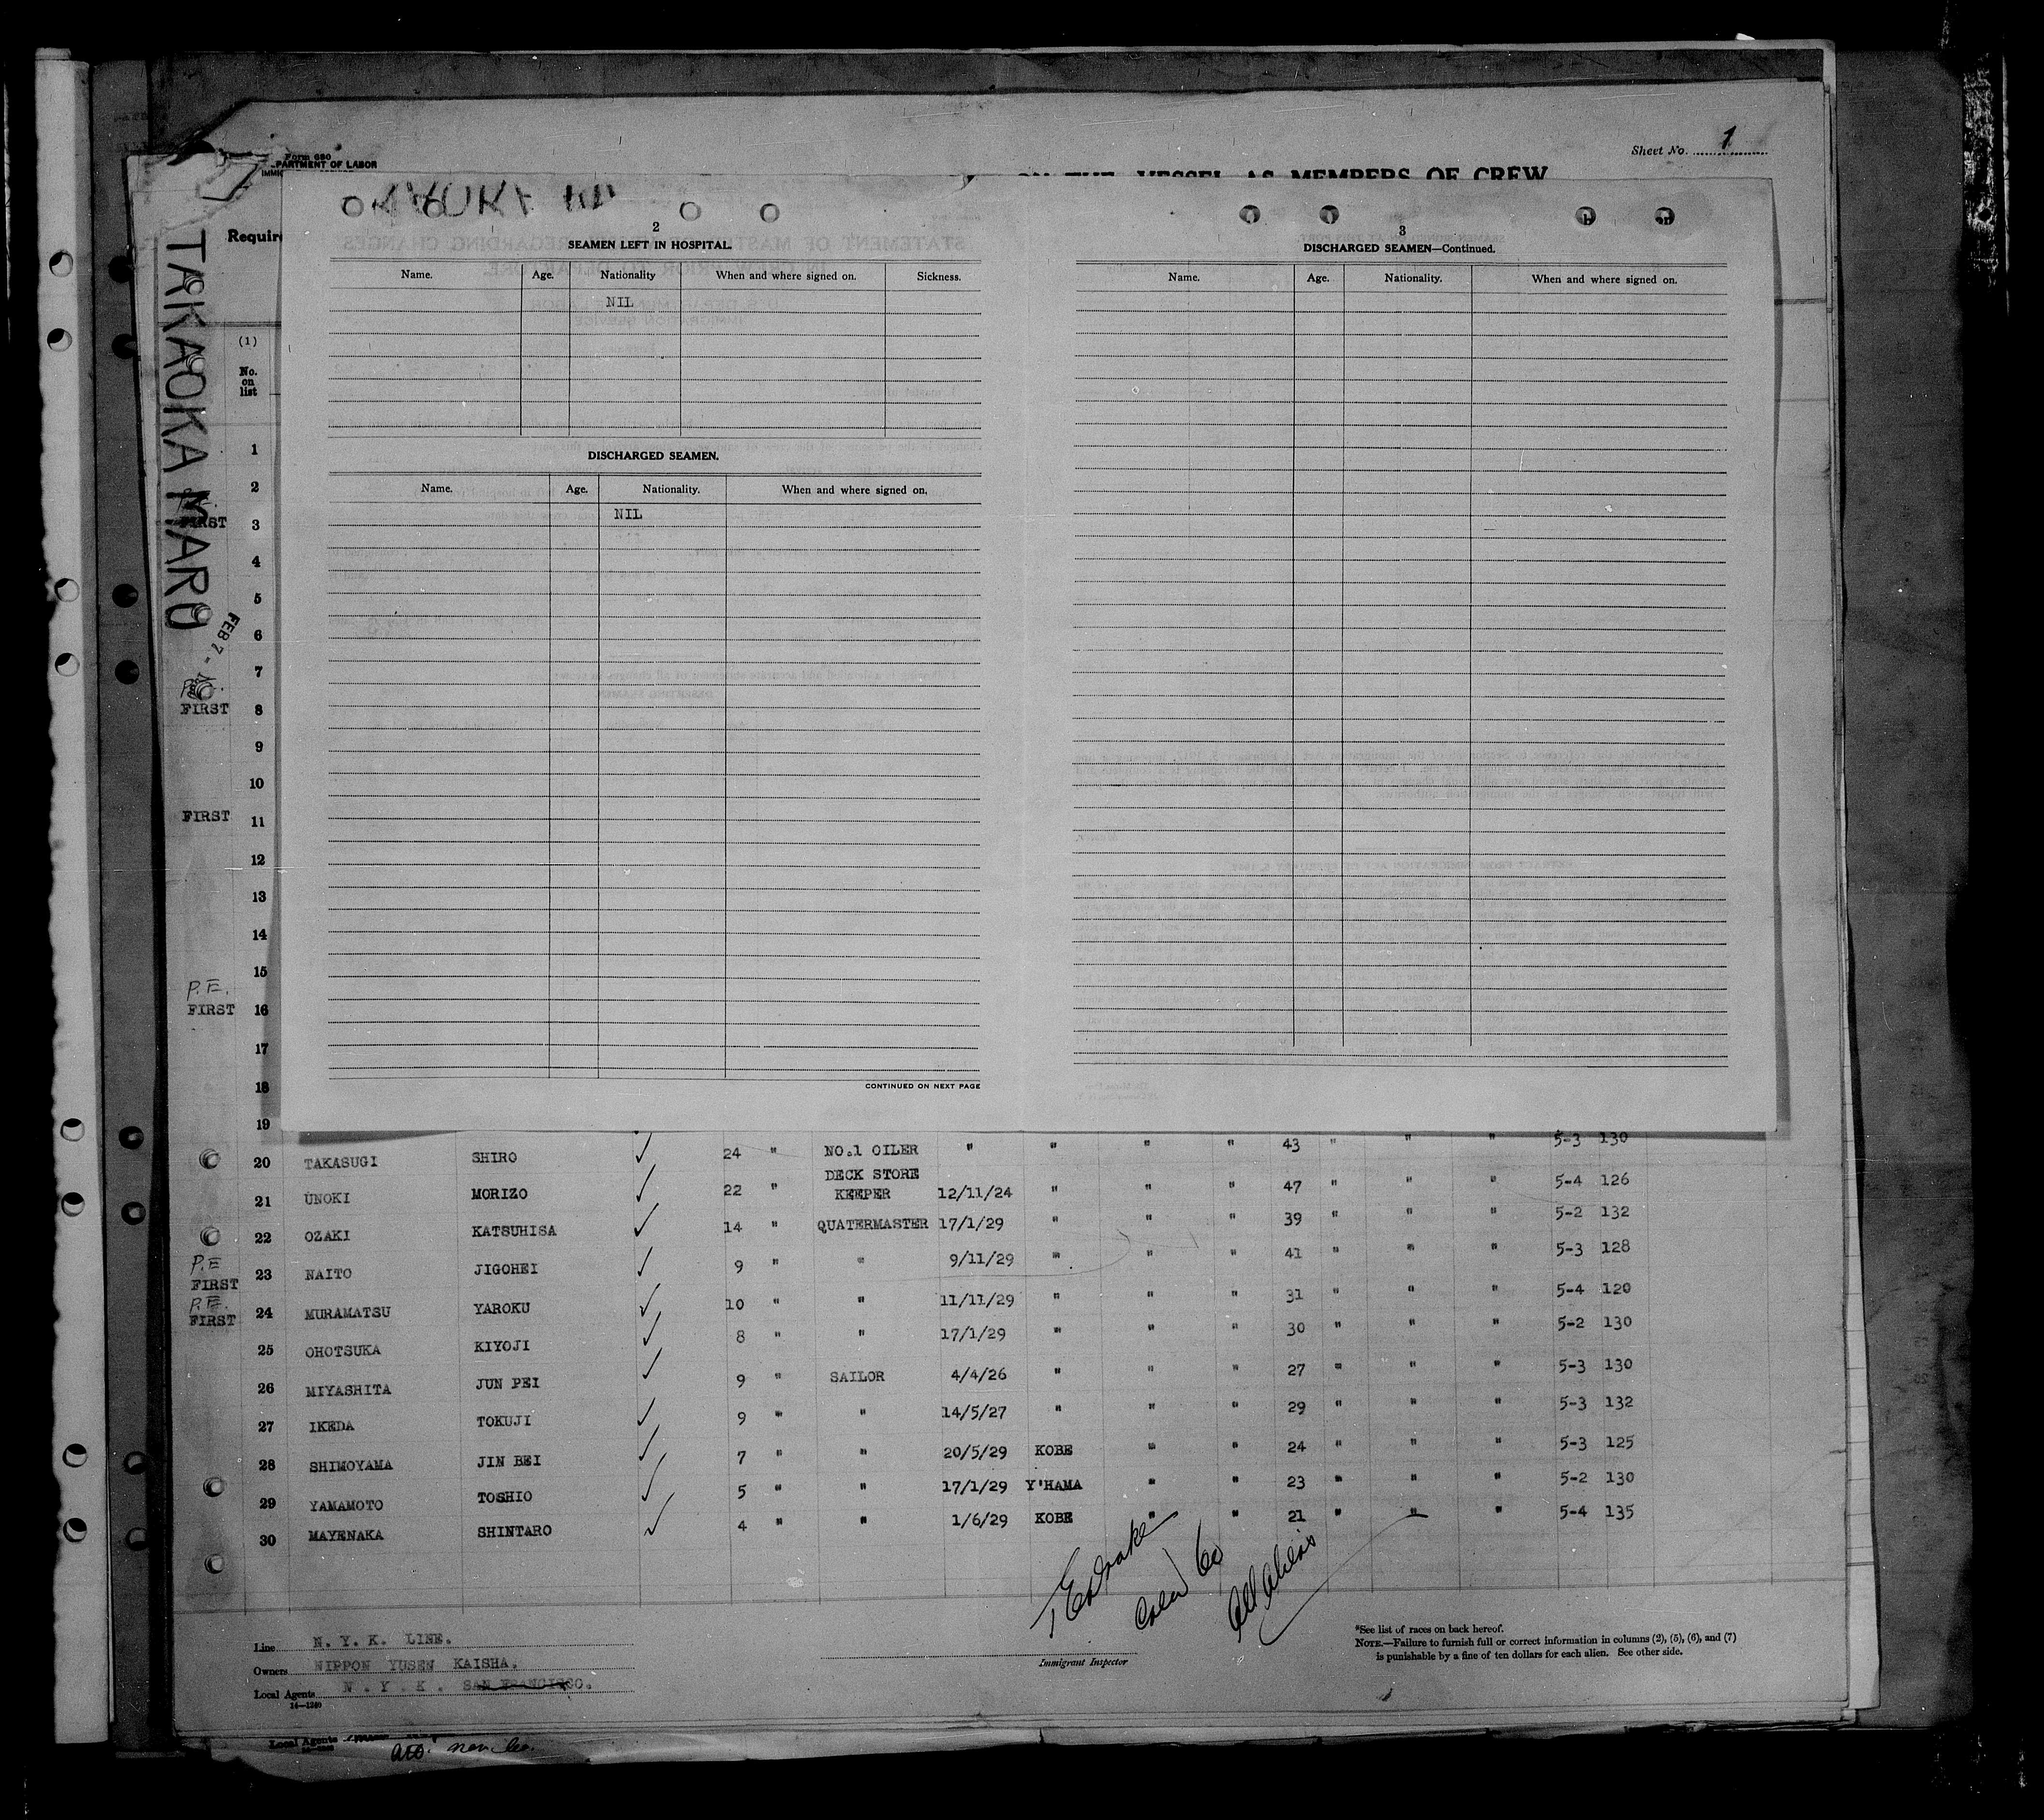 Sheet No. 1
Form 680
DEPARTMENT OF LABOR
ON THE VESSEL AS MEMBERS OF CREW
TAKAOKA MARU
FEB 7
(1)
No.
on
list
1
2
FIRST 3
4
5
6
7
FIRST 8
9
10
FIRST 11
12
13
14
15
P.E.
FIRST 16
17
18
19
2
SEAMEN LEFT IN HOSPITAL.
Name. Age. Nationality When and where signed on. Sickness.
NIL
DISCHARGED SEAMEN.
Name. Age. Nationality. When and where signed on.
NIL
CONTINUED ON NEXT PAGE
3
DISCHARGED SEAMEN—Continued.
Name. Age. Nationality. When and where signed on.
20 TAKASUGI SHIRO ✓ 24 " NO.1 OILER " " " " 43 " " " 5-3 130
21 UNOKI MORIZO ✓ 22 " DECK STORE KEEPER 12/11/24 " " " 47 " " " 5-4 126
22 OZAKI KATSUHISA ✓ 14 " QUATERMASTER 17/1/29 " " " 39 " " " 5-2 132
P.E
FIRST 23 NAITO JIGOHEI ✓ 9 " " 9/11/29 " " " 41 " " " 5-3 128
P.E.
FIRST 24 MURAMATSU YAROKU ✓ 10 " " 11/11/29 " " " 31 " " " 5-4 120
25 OHOTSUKA KIYOJI ✓ 8 " " 17/1/29 " " " 30 " " " 5-2 130
26 MIYASHITA JUN PEI ✓ 9 " SAILOR 4/4/26 " " " 27 " " " 5-3 130
27 IKEDA TOKUJI ✓ 9 " " 14/5/27 " " " 29 " " " 5-3 132
28 SHIMOYAMA JIN BEI ✓ 7 " " 20/5/29 KOBE " " 24 " " " 5-3 125
29 YAMAMOTO TOSHIO ✓ 5 " " 17/1/29 Y'HAMA " " 23 " " " 5-2 130
30 MAYENAKA SHINTARO ✓ 4 " " 1/6/29 KOBE " " 21 " " " 5-4 135
All Aliens
Line N. Y. K. LINE.
Owners NIPPON YUSEN KAISHA.
Local Agents N. Y. K. SAN FRANCISCO.
14—1240
Immigrant Inspector
*See list of races on back hereof.
NOTE.—Failure to furnish full or correct information in columns (2), (5), (6), and (7)
is punishable by a fine of ten dollars for each alien. See other side.
Local Agents